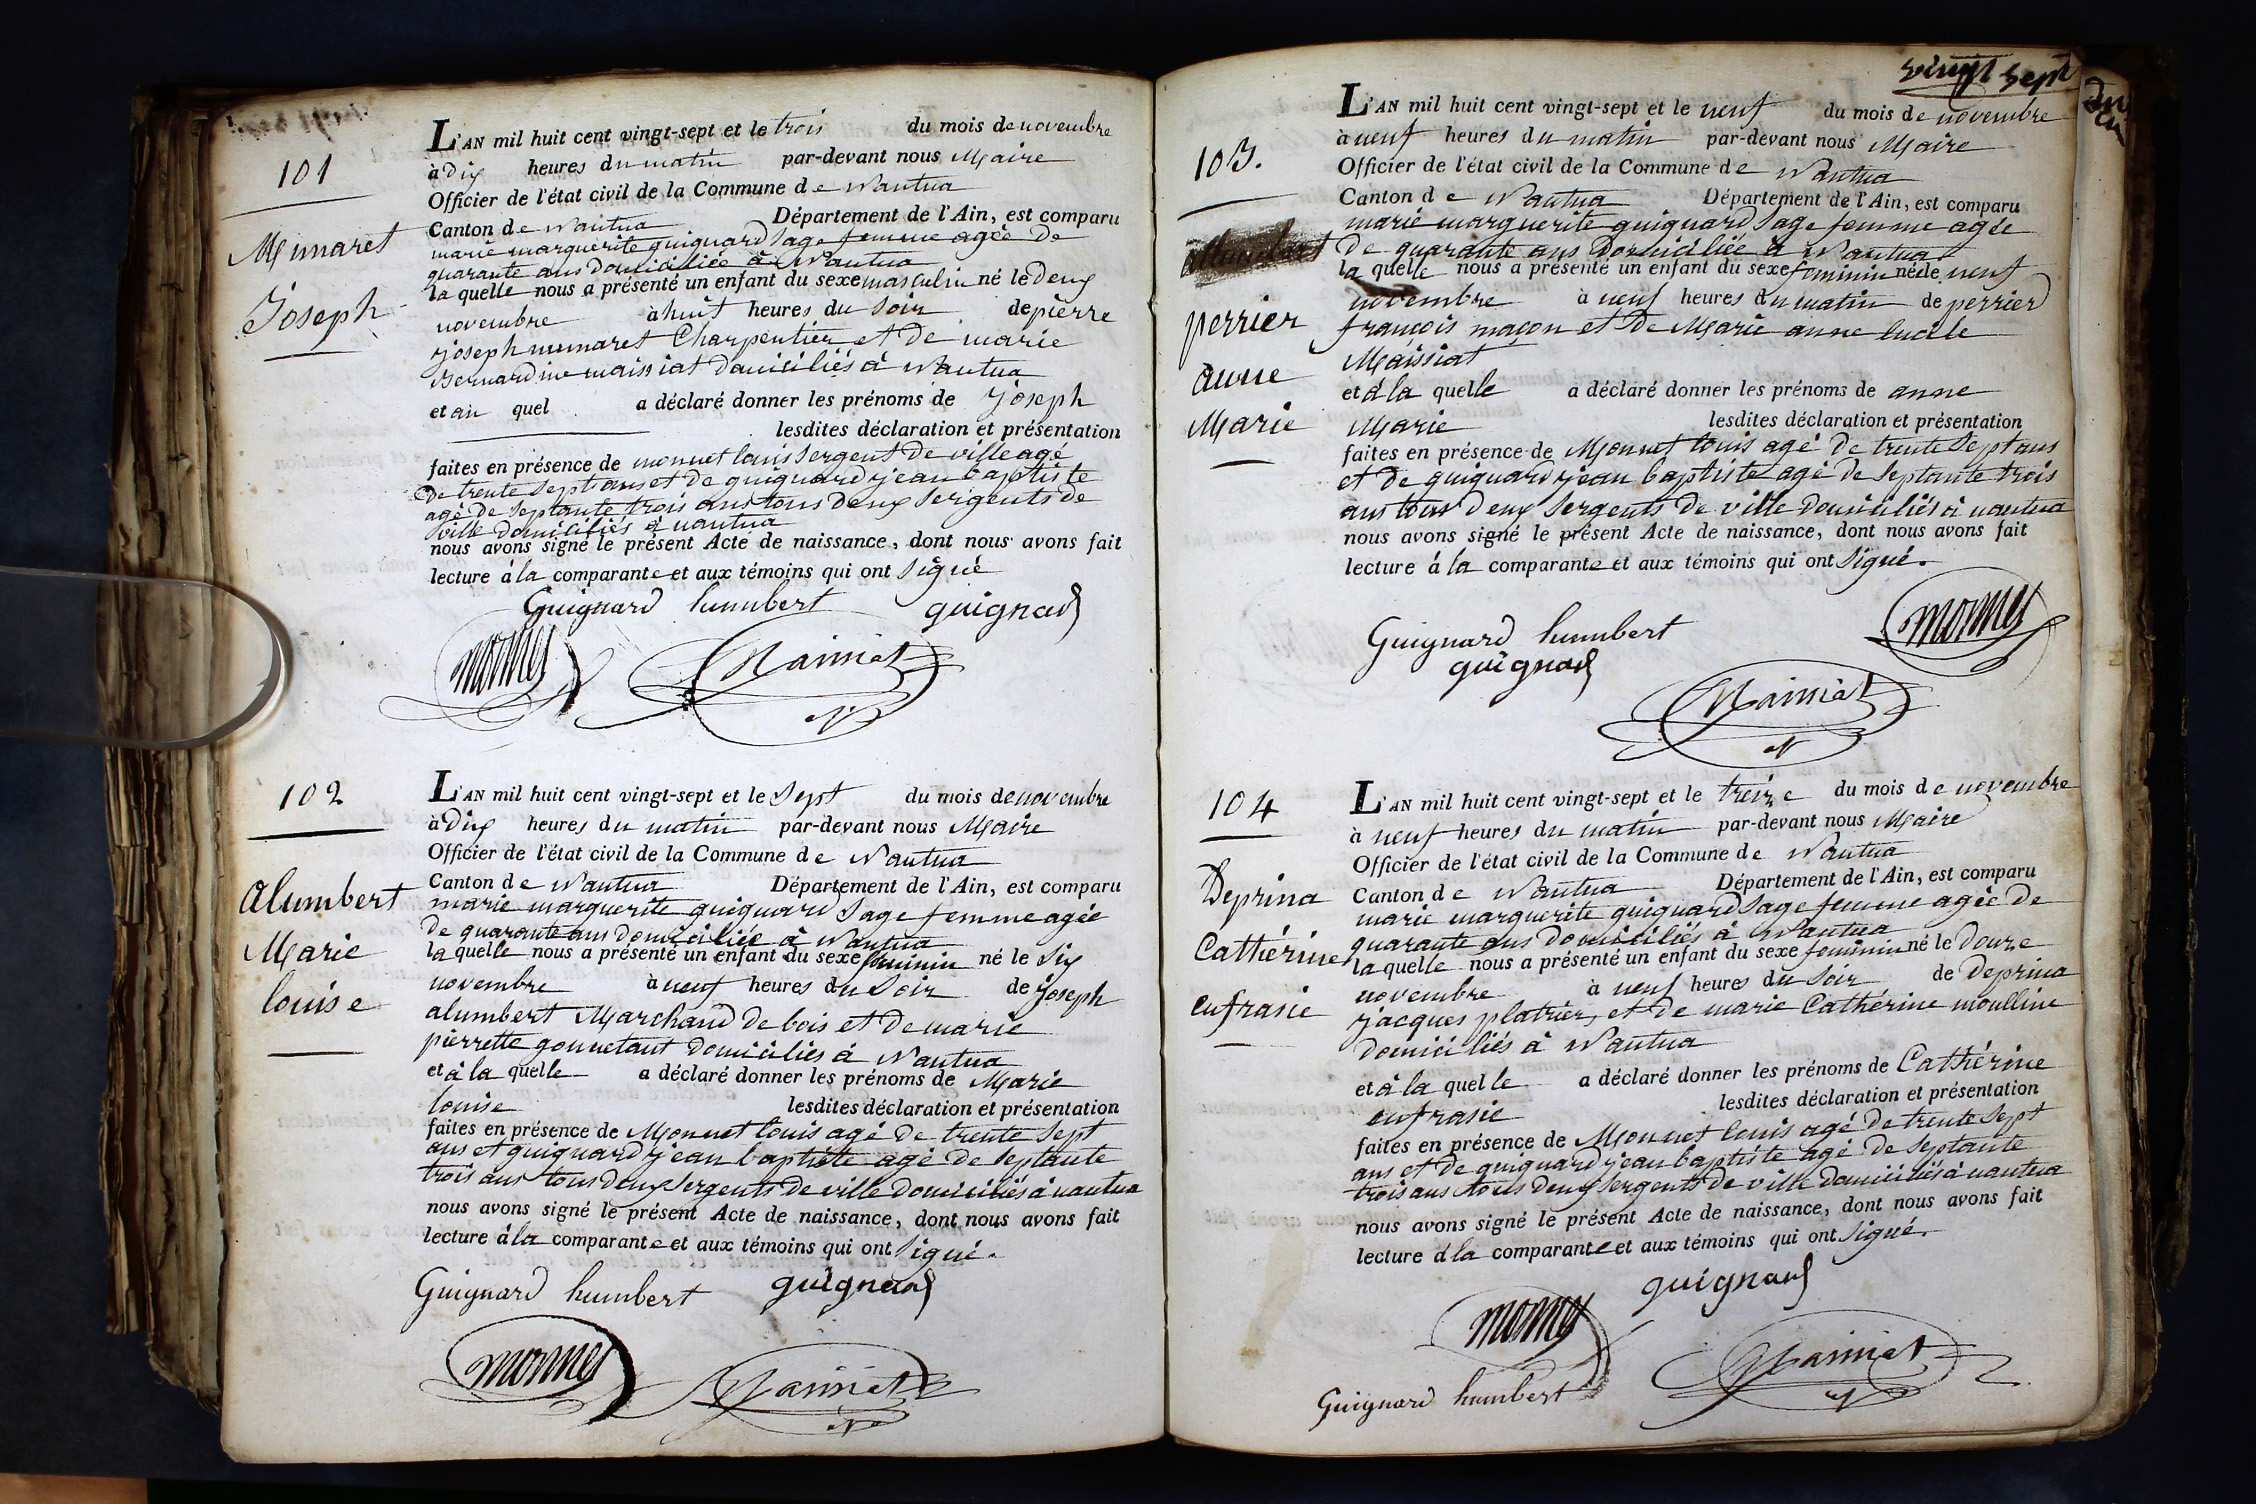 101
Munaret
Joseph
L'AN mil huit cent vingt-sept et le trois du mois de novembre
à dix heures du matin par-devant nous Maire
Officier de l'état civil de la Commune de Nantua
Canton de Nantua Département de l'Ain, est comparu
marie marguerite guignard sage femme agée de
quarante ans domiciliée à Nantua
la quelle nous a présenté un enfant du sexe masculin né le deux
novembre à huit heures du soir de pierre
joseph munaret Charpentier et de marie
Bernardine maissiat domiciliés à Nantua
et au quel a déclaré donner les prénoms de joseph
lesdites déclaration et présentation
faites en présence de monnet louis sergent de ville agé
de trente sept ans et de guignard jean baptiste
agé de septante trois ans tous deux sergents de
ville domiciliés à nantua
nous avons signé le présent Acte de naissance, dont nous avons fait
lecture à la comparante et aux témoins qui ont signé
Guignard humbert guignard
monnet Maissiat
102
alumbert
Marie
louise
L'AN mil huit cent vingt-sept et le sept du mois de novembre
à dix heures du matin par-devant nous Maire
Officier de l'état civil de la Commune de Nantua
Canton de Nantua Département de l'Ain, est comparu
marie marguerite guignard sage femme agée
de quarante ans domiciliée à Nantua
la quelle nous a présenté un enfant du sexe feminin né le six
novembre à neuf heures du soir de joseph
alumbert Marchand de bois et de marie
pierrette gonnetant domiciliés à Nantua
et à la quelle a déclaré donner les prénoms de Marie
louise lesdites déclaration et présentation
faites en présence de Monnet louis agé de trente sept
ans et guignard jean baptiste agé de septante
trois ans tous deux sergents de ville domiciliés à nantua
nous avons signé le présent Acte de naissance, dont nous avons fait
lecture à la comparante et aux témoins qui ont signé.
Guignard humbert guignard
monnet Maissiat
vingt sept
103.
perrier
anne
Marie
L'AN mil huit cent vingt-sept et le neuf du mois de novembre
à neuf heures du matin par-devant nous Maire
Officier de l'état civil de la Commune de Nantua
Canton de Nantua Département de l'Ain, est comparu
marie marguerite guignard sage femme agée
de quarante ans domiciliée à Nantua
la quelle nous a présenté un enfant du sexe feminin née le neuf
novembre à neuf heures du matin de perrier
françois maçon et de Marie anne lucile
Maissiat
et à la quelle a déclaré donner les prénoms de anne
Marie lesdites déclaration et présentation
faites en présence de Monnet louis agé de trente sept ans
et de guignard jean baptiste agé de septante trois
ans tous deux sergents de ville domiciliés à nantua
nous avons signé le présent Acte de naissance, dont nous avons fait
lecture à la comparante et aux témoins qui ont signé.
Guignard humbert monnet
guignard
Maissiat
104
Deprina
Cathérine
eufrasie
L'AN mil huit cent vingt-sept et le treize du mois de novembre
à neuf heures du matin par-devant nous Maire
Officier de l'état civil de la Commune de Nantua
Canton de Nantua Département de l'Ain, est comparu
marie marguerite guignard sage femme agée de
quarante ans domiciliés à Nantua
la quelle nous a présenté un enfant du sexe feminin né le douze
novembre à neuf heures du soir de Deprina
jacques platrier, et de marie Cathérine moulline
domiciliés à Nantua
et à la quelle a déclaré donner les prénoms de Cathérine
eufrasie lesdites déclaration et présentation
faites en présence de Monnet louis agé de trente sept
ans et de guignard jean baptiste agé de septante
trois ans tous deux sergents de ville domiciliés à nantua
nous avons signé le présent Acte de naissance, dont nous avons fait
lecture à la comparante et aux témoins qui ont signé.
guignard
monnet Maissiat
Guignard humbert